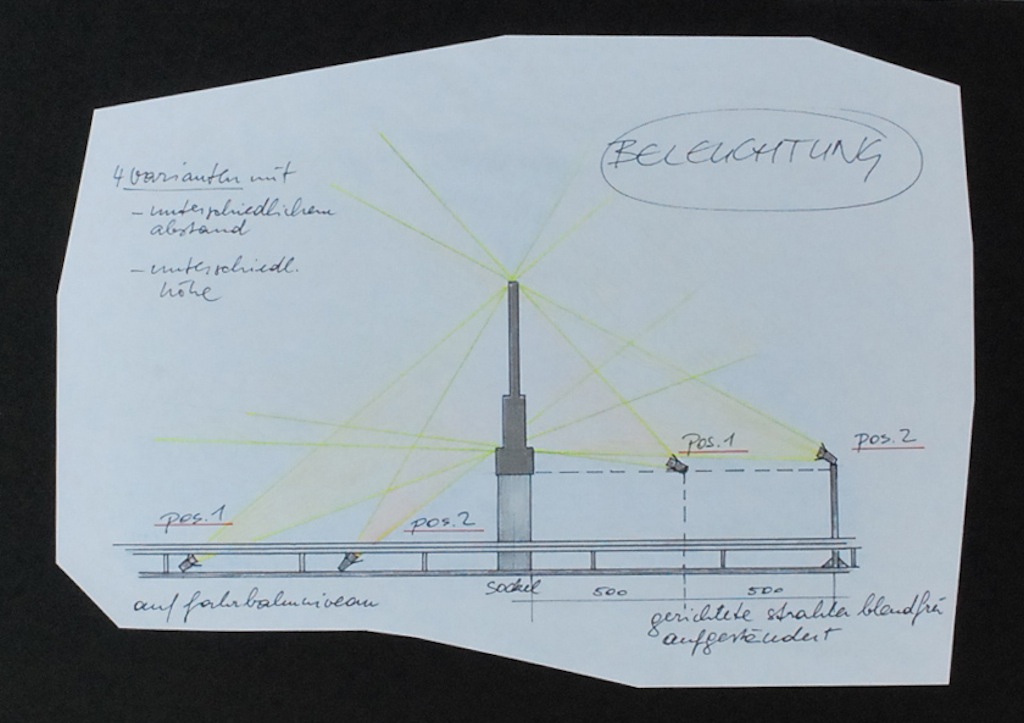 BELEUCHTUNG
4 varianten mit
- unterschiedlichem
abstand
- unterschiedl.
höhe
pos.1
pos.2
pos.1
pos.2
auf fahrbahnniveau
Sockel
500
500
gerichtete strahler blendfrei
aufgeständert